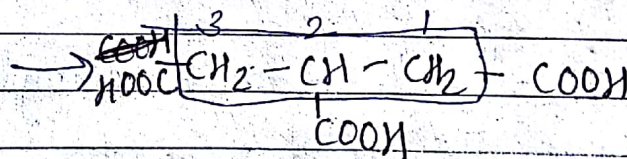 3 2 1
→ HOOC CH₂ - CH - CH₂ - COOH
COOH